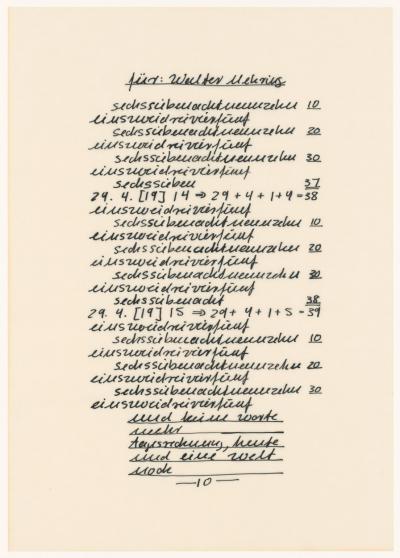 für: Walter Mehring
sechssiebenachtneunzehn 10
einszweidreivierfünf
sechssiebenachtneunzehn 20
einszweidreivierfünf
sechssiebenachtneunzehn 30
einszweidreivierfünf
sechssieben 37
29. 4. [19] 14 ⇒ 29 + 4 + 1 + 4 = 38
einszweidreivierfünf
sechssiebenachtneunzehn 10
einszweidreivierfünf
sechssiebenachtneunzehn 20
einszweidreivierfünf
sechssiebenachtneunzehn 30
einszweidreivierfünf
sechssiebenacht 38
29. 4. [19] 15 ⇒ 29 + 4 + 1 + 5 = 39
einszweidreivierfünf
sechssiebenachtneunzehn 10
einszweidreivierfünf
sechssiebenachtneunzehn 20
einszweidreivierfünf
sechssiebenachtneunzehn 30
einszweidreivierfünf
und keine worte
mehr
tagesrechnung, heute
und eine welt
noch
—10—